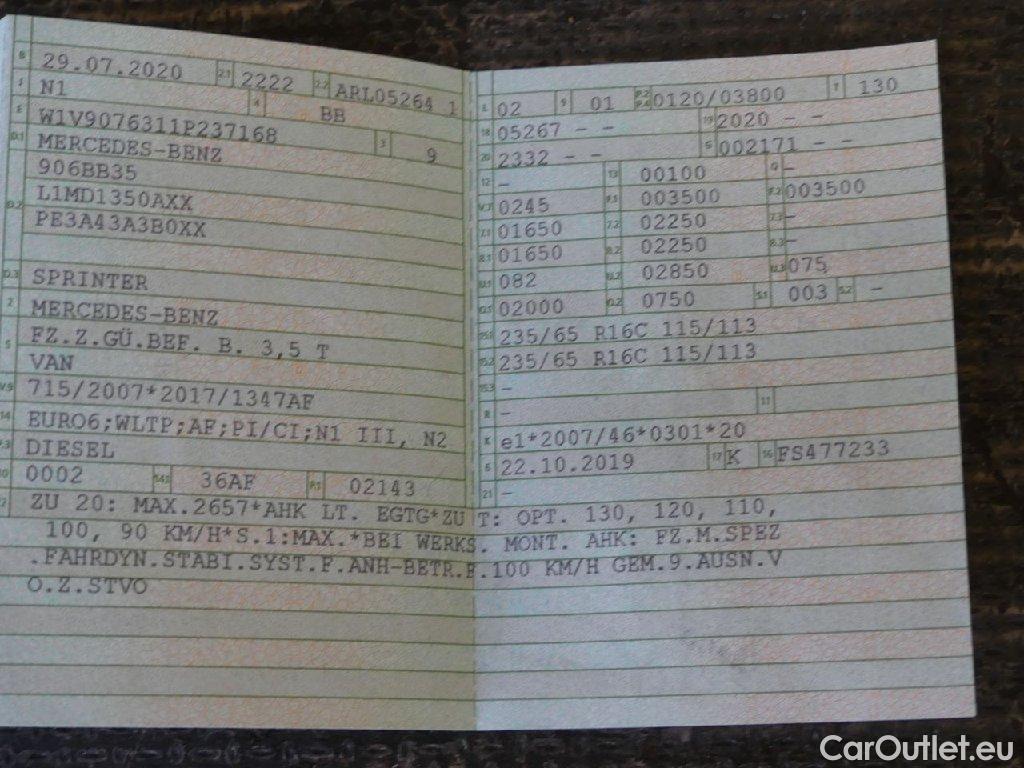 B 29.07.2020 2.1 2222 2.2 ARL05264 1
J N1 4 BB
E W1V9076311P237168 3 9
D.1 MERCEDES-BENZ
906BB35
D.2 L1MD1350AXX
PE3A43A3B0XX
D.3 SPRINTER
2 MERCEDES-BENZ
5 FZ.Z.GÜ.BEF. B. 3,5 T
VAN
V.9 715/2007*2017/1347AF
14 EURO6;WLTP;AF;PI/CI;N1 III, N2
P.3 DIESEL
10 0002 14.1 36AF P.1 02143
L 02 9 01 P.2 P.4 0120/03800 T 130
18 05267 - - 19 2020 - -
20 2332 - - G 002171 - -
12 - 13 00100 Q -
V.7 0245 F.1 003500 F.2 003500
7.1 01650 7.2 02250 7.3 -
8.1 01650 8.2 02250 8.3 -
U.1 082 U.2 02850 U.3 075
O.1 02000 O.2 0750 S.1 003 S.2 -
15.1 235/65 R16C 115/113
15.2 235/65 R16C 115/113
15.3 -
R - 11
K e1*2007/46*0301*20
6 22.10.2019 17 K 16 FS477233
21 -
22 ZU 20: MAX.2657*AHK LT. EGTG*ZU T: OPT. 130, 120, 110,
100, 90 KM/H*S.1:MAX.*BEI WERKS. MONT. AHK: FZ.M.SPEZ
.FAHRDYN.STABI.SYST.F.ANH-BETR.B.100 KM/H GEM.9.AUSN.V
O.Z.STVO
CarOutlet.eu